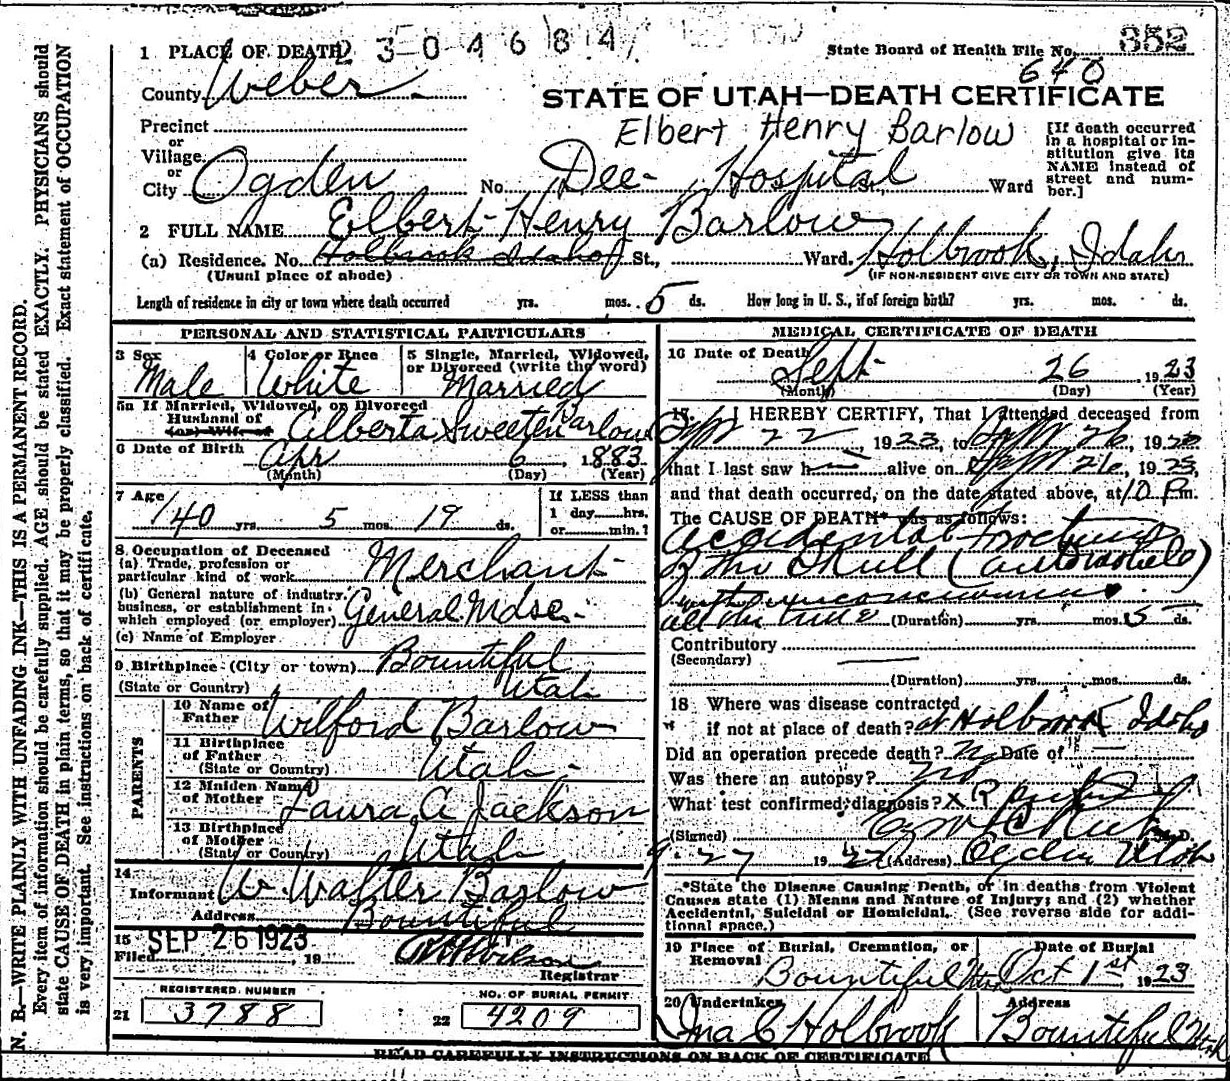 2304684
State Board of Health File No. 352
640
1 PLACE OF DEATH
County Weber
STATE OF UTAH—DEATH CERTIFICATE
Precinct
or
Village
or
City Ogden No. Dee Hospital Ward
Elbert Henry Barlow
[If death occurred in a hospital or in-
stitution give its NAME instead of street and num-
ber.]
2 FULL NAME Elbert Henry Barlow
(a) Residence. No. Holbrook Idaho St., Ward. Holbrook, Idaho
(Usual place of abode) (IF NON-RESIDENT GIVE CITY OR TOWN AND STATE)
Length of residence in city or town where death occurred yrs. mos. 5 ds. How long in U. S., if of foreign birth? yrs. mos. ds.
PERSONAL AND STATISTICAL PARTICULARS
3 Sex Male
4 Color or Race White
5 Single, Married, Widowed, or Divorced (write the word) Married
5a If Married, Widowed, or Divorced
Husband of
(or) Wife of Alberta Sweeten Barlow
6 Date of Birth Apr 6, 1883
(Month) (Day) (Year)
7 Age 40 yrs. 5 mos. 19 ds.
If LESS than
1 day....hrs.
or....min.?
8 Occupation of Deceased
(a) Trade, profession or
particular kind of work Merchant
(b) General nature of industry,
business, or establishment in
which employed (or employer) General Mdse.
(c) Name of Employer
9 Birthplace (City or town) Bountiful
(State or Country) Utah
PARENTS
10 Name of
Father Wilford Barlow
11 Birthplace
of Father
(State or Country) Utah
12 Maiden Name
of Mother Laura A Jackson
13 Birthplace
of Mother
(State or Country) Utah
14
Informant W. Walter Barlow
Address Bountiful
15
Filed SEP 26 1923, 19
Wilson
Registrar
REGISTERED NUMBER
21 3788
NO. OF BURIAL PERMIT
22 4209
MEDICAL CERTIFICATE OF DEATH
16 Date of Death Sept 26 1923
(Month) (Day) (Year)
17. I HEREBY CERTIFY, That I attended deceased from
Sept 22, 1923, to Sept 26, 1923
that I last saw h alive on Sept 26, 1923,
and that death occurred, on the date stated above, at 10 P.m.
The CAUSE OF DEATH* was as follows:
Accidental fracture
of the Skull (automobile)
with unconsciousness
all the time (Duration) yrs. mos. 5 ds.
Contributory
(Secondary)
(Duration) yrs. mos. ds.
18 Where was disease contracted
if not at place of death? at Holbrook Idaho
Did an operation precede death? No Date of
Was there an autopsy? No
What test confirmed diagnosis? X R
(Signed) M.D.
9-27 1923 (Address) Ogden Utah
*State the Disease Causing Death, or in deaths from Violent
Causes state (1) Means and Nature of Injury; and (2) whether
Accidental, Suicidal or Homicidal. (See reverse side for addi-
tional space.)
19 Place of Burial, Cremation, or Removal Bountiful Utah
Date of Burial Oct 1st 1923
20 Undertaker Ina C Holbrook
Address Bountiful Utah
READ CAREFULLY INSTRUCTIONS ON BACK OF CERTIFICATE
N. B.—WRITE PLAINLY WITH UNFADING INK—THIS IS A PERMANENT RECORD.
Every item of information should be carefully supplied. AGE should be stated EXACTLY. PHYSICIANS should
state CAUSE OF DEATH in plain terms, so that it may be properly classified. Exact statement of OCCUPATION
is very important. See instructions on back of certificate.